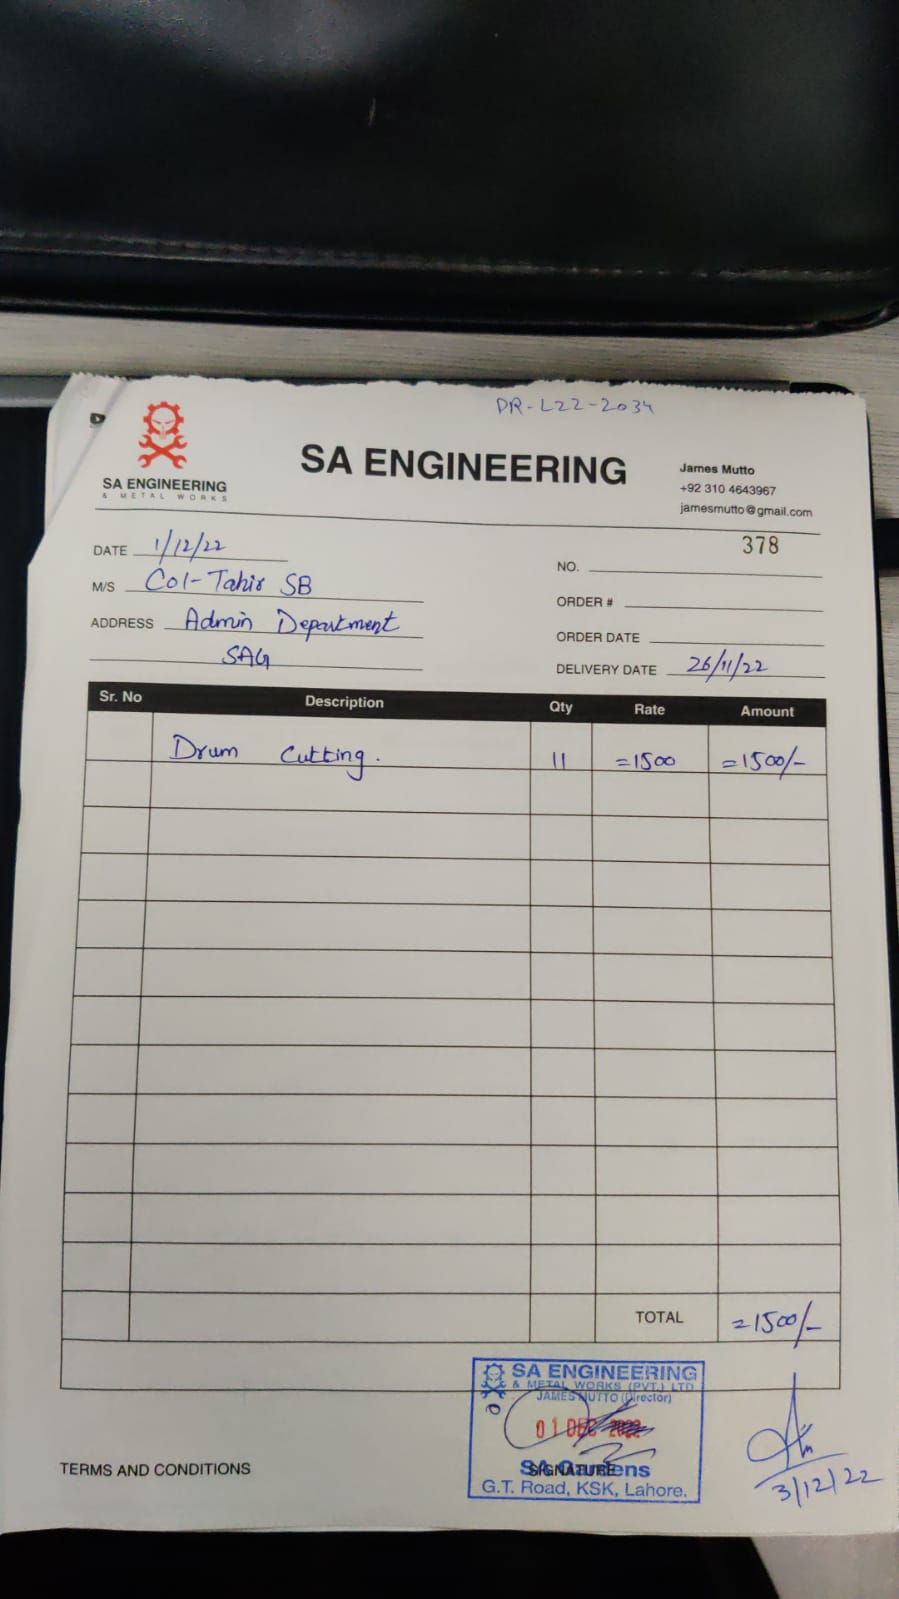 DR-L22-2034
SA ENGINEERING
& METAL WORKS
SA ENGINEERING
James Mutto
+92 310 4643967
jamesmutto@gmail.com
DATE 1/12/22
378
NO.
M/S Col-Tahir SB
ORDER #
ADDRESS Admin Department
ORDER DATE
SAG
DELIVERY DATE 26/11/22
Sr. No Description Qty Rate Amount
Drum Cutting. 11 =1500 =1500/-
TOTAL =1500/-
SA ENGINEERING
& METAL WORKS (PVT.) LTD
JAMES MUTTO (Director)
01 DEC 2022
SIGNATURE
SA Gardens
G.T. Road, KSK, Lahore.
TERMS AND CONDITIONS
3/12/22